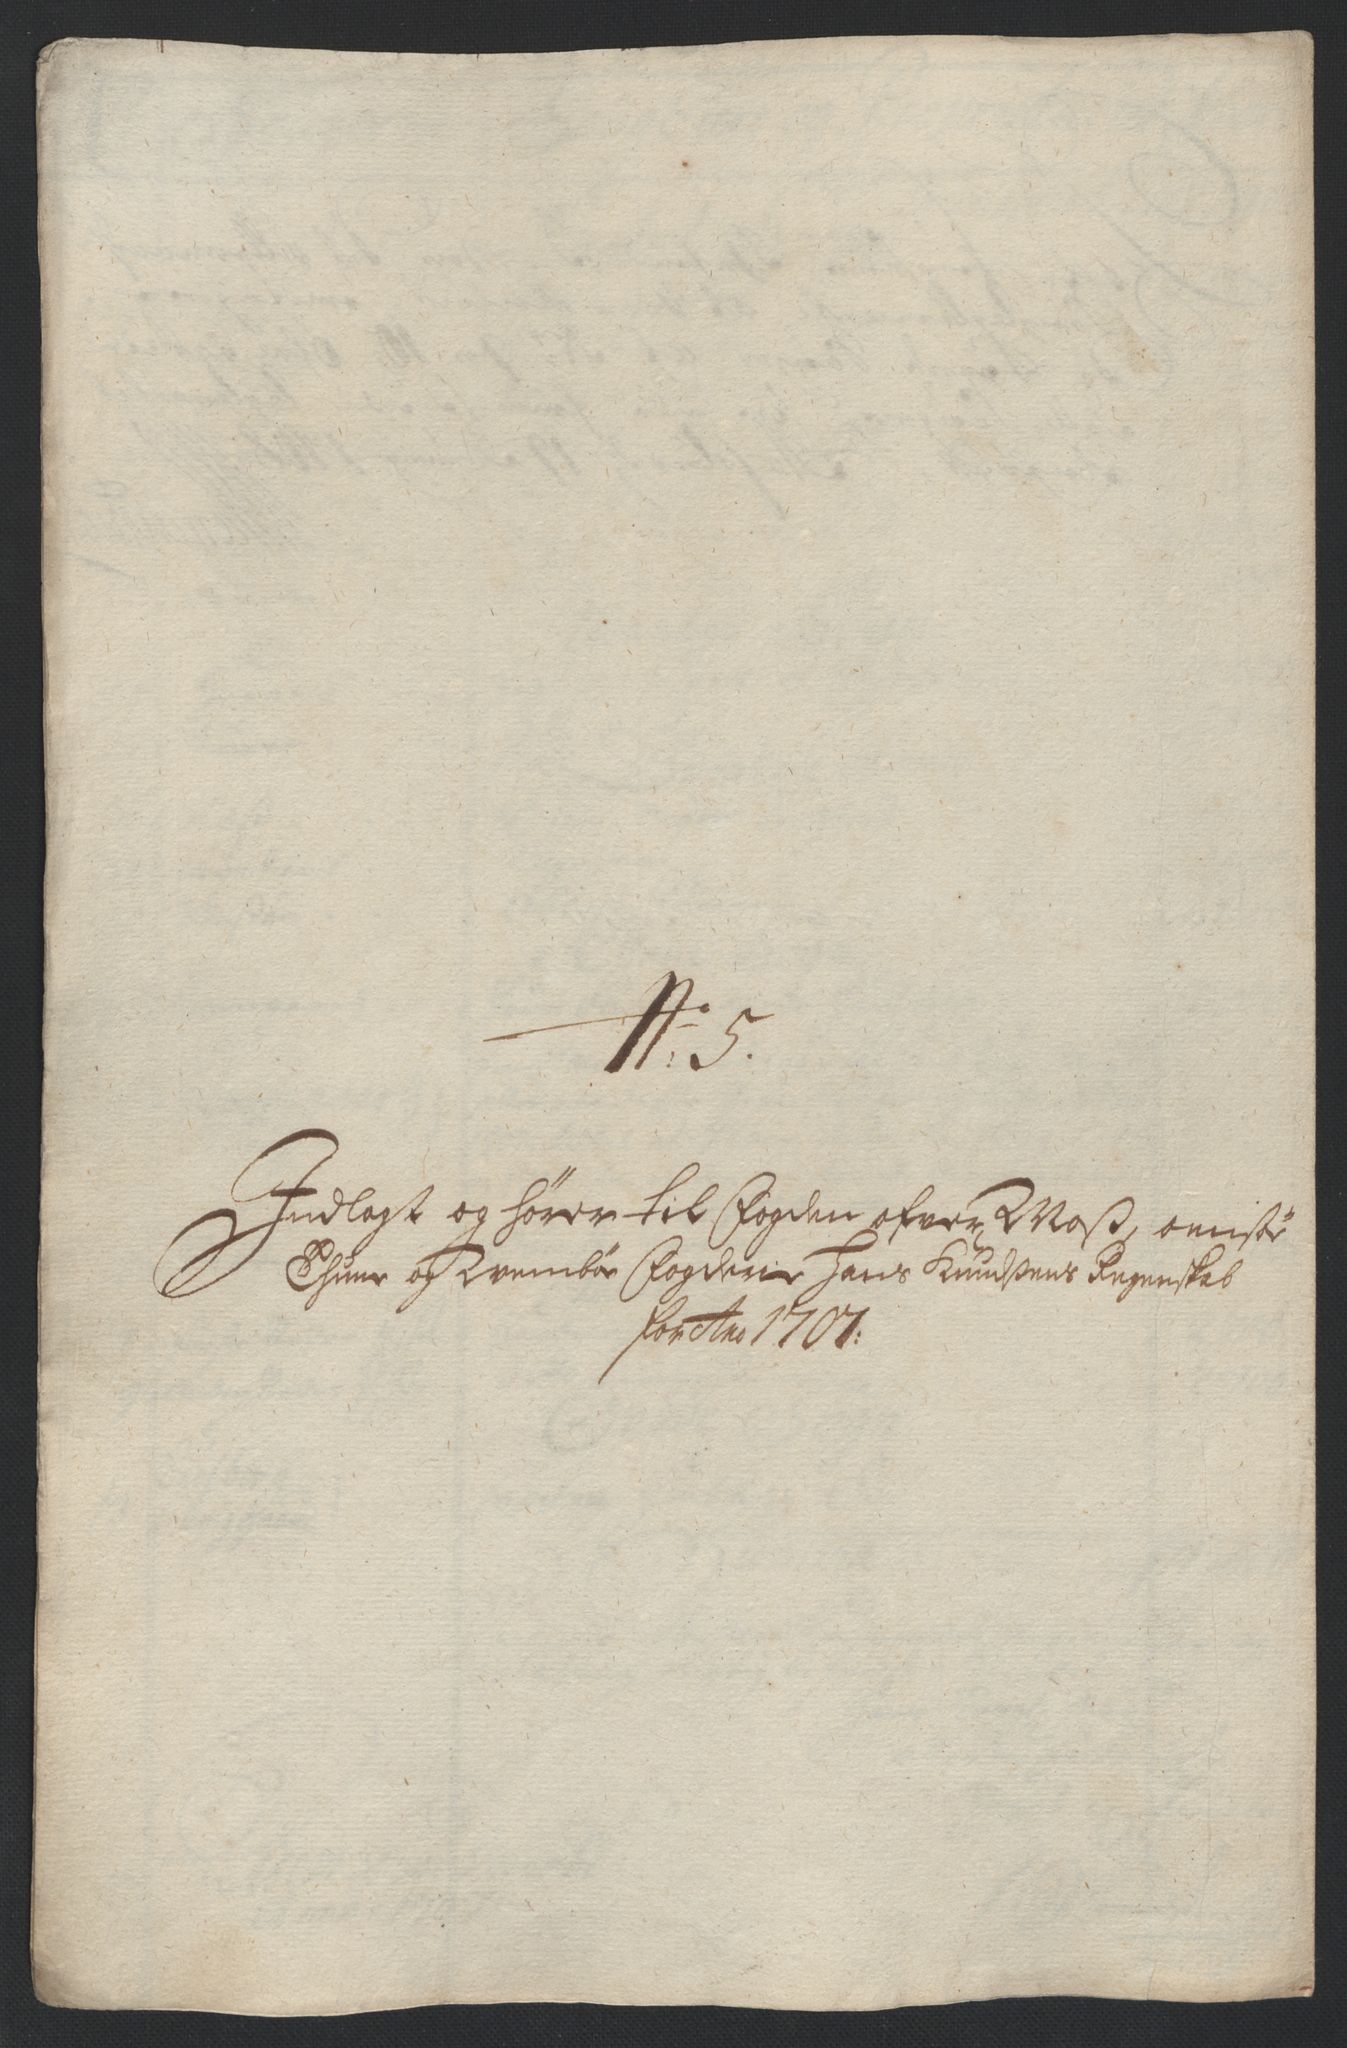 No: 5.
Indlagt og hører til Fogden ofver Moss, onisøe
Thune og Wembøe Fogderie Hans Knudsens Regenskab
for Ano 1707: